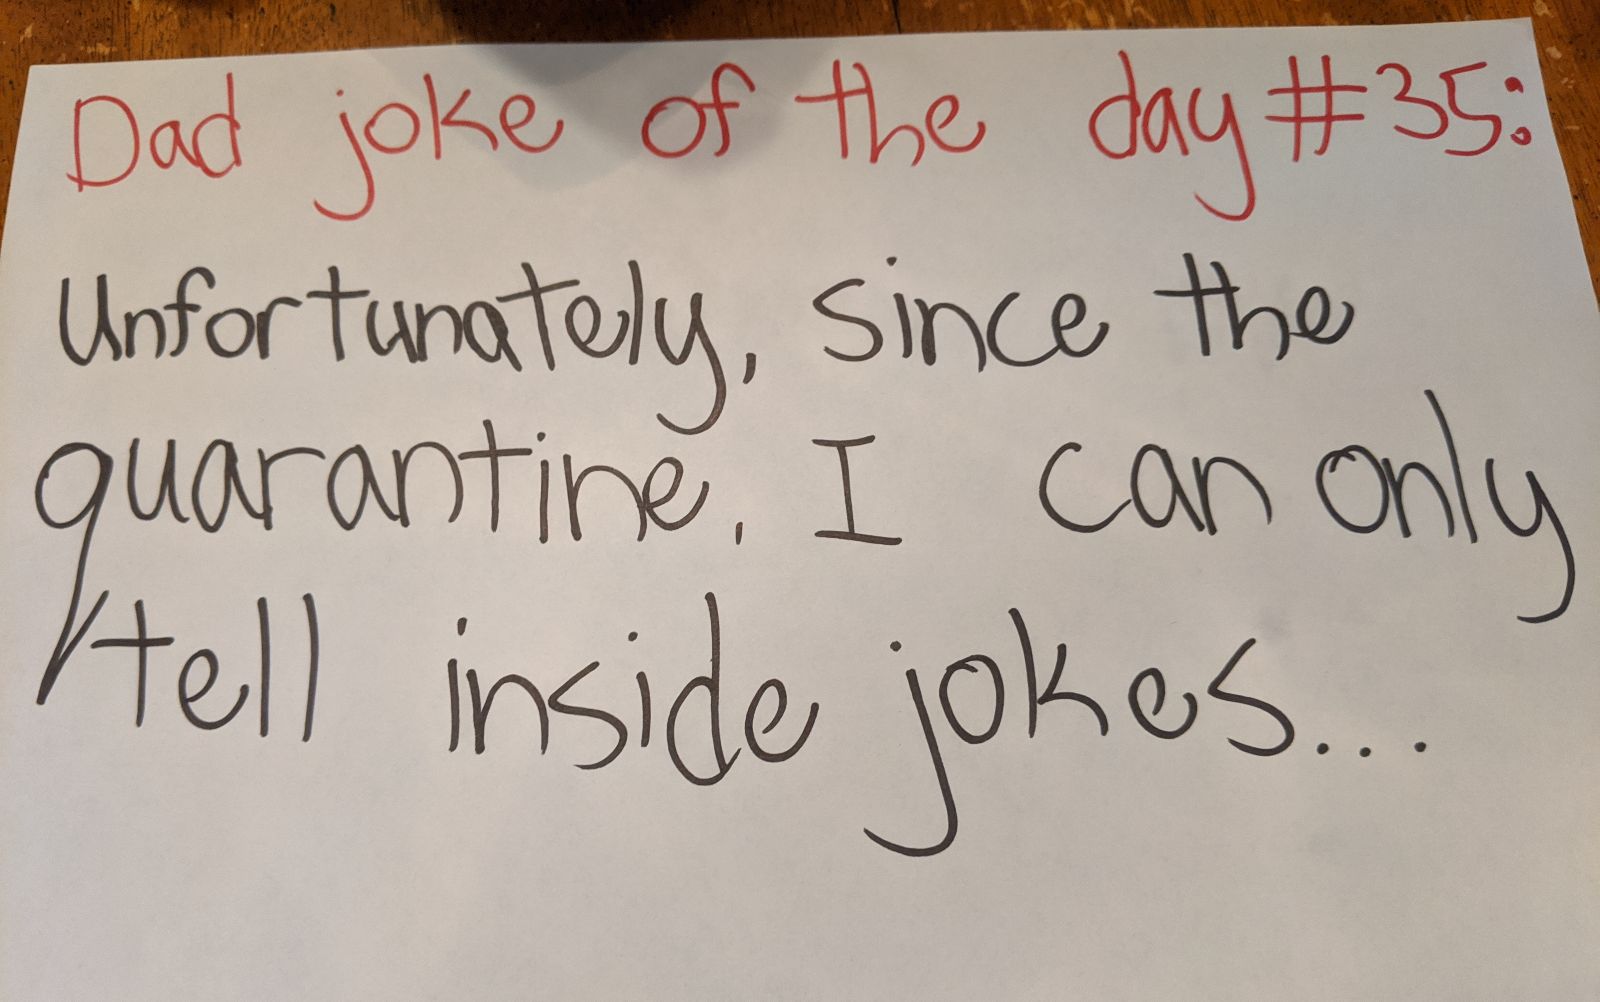 Dad joke of the day #35:
Unfortunately, since the
quarantine, I can only
tell inside jokes...